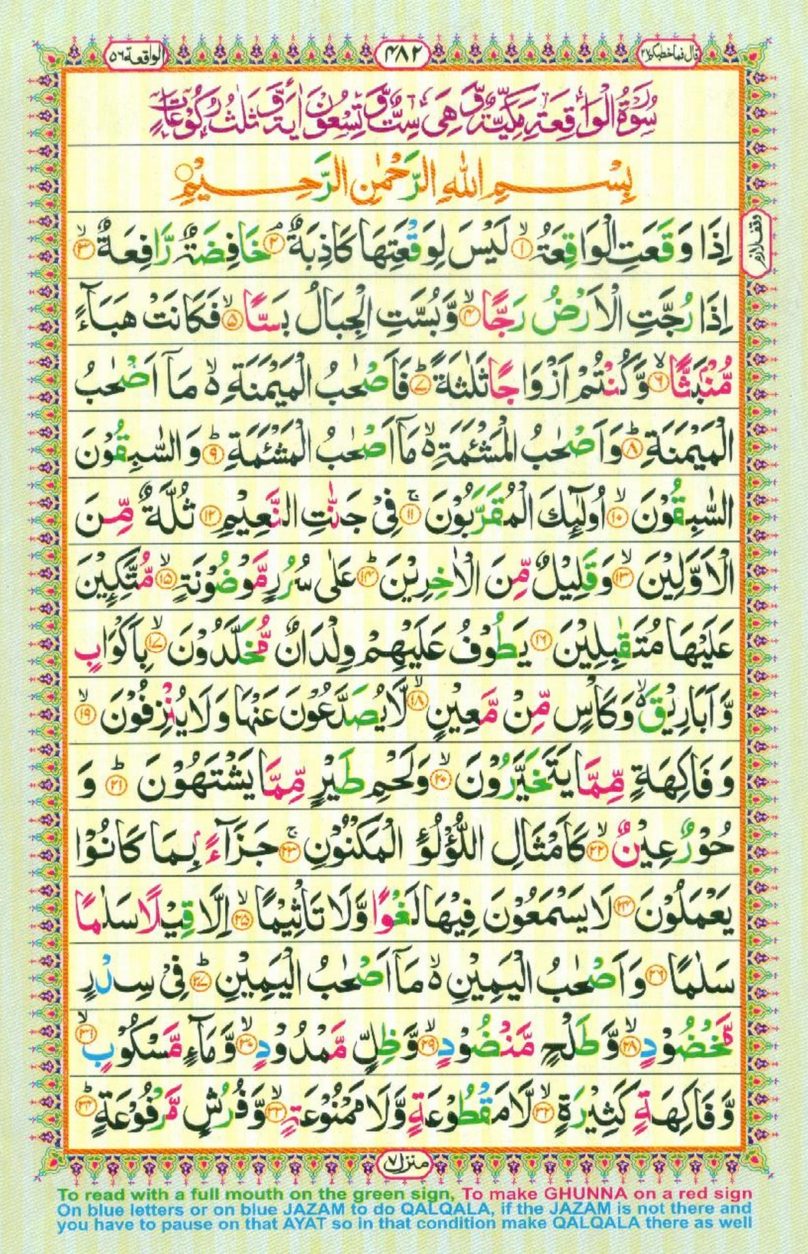 قال فما خطبكم ٢٧
٤٨٢
الواقعة ٥٦
سُوْرَةُ الْوَاقِعَةِ مَكِّيَّةٌ وَّهِيَ سِتٌّ وَّتِسْعُوْنَ اٰيَةً وَّثَلٰثُ رُكُوْعَاتٍ
بِسْمِ اللّٰهِ الرَّحْمٰنِ الرَّحِيْمِ
اِذَا وَقَعَتِ الْوَاقِعَةُ ۙ﴿۱﴾ لَيْسَ لِوَقْعَتِهَا كَاذِبَةٌ ۘ﴿۲﴾ خَافِضَةٌ رَّافِعَةٌ ۙ﴿۳﴾
وقف لازم
اِذَا رُجَّتِ الْاَرْضُ رَجًّا ۙ﴿۴﴾ وَّبُسَّتِ الْجِبَالُ بَسًّا ۙ﴿۵﴾ فَكَانَتْ هَبَآءً
مُّنْۢبَثًّا ۙ﴿۶﴾ وَّكُنْتُمْ اَزْوَاجًا ثَلٰثَةً ؕ﴿۷﴾ فَاَصْحٰبُ الْمَيْمَنَةِ ۙ۬ مَاۤ اَصْحٰبُ
الْمَيْمَنَةِ ؕ﴿۸﴾ وَاَصْحٰبُ الْمَشْـَٔمَةِ ۙ۬ مَاۤ اَصْحٰبُ الْمَشْـَٔمَةِ ؕ﴿۹﴾ وَالسّٰبِقُوْنَ
السّٰبِقُوْنَ ۙ﴿۱۰﴾ اُولٰٓئِكَ الْمُقَرَّبُوْنَ ۚ﴿۱۱﴾ فِيْ جَنّٰتِ النَّعِيْمِ ﴿۱۲﴾ ثُلَّةٌ مِّنَ
الْاَوَّلِيْنَ ۙ﴿۱۳﴾ وَقَلِيْلٌ مِّنَ الْاٰخِرِيْنَ ؕ﴿۱۴﴾ عَلٰى سُرُرٍ مَّوْضُوْنَةٍ ۙ﴿۱۵﴾ مُّتَّكِـِٕيْنَ
عَلَيْهَا مُتَقٰبِلِيْنَ ﴿۱۶﴾ يَطُوْفُ عَلَيْهِمْ وِلْدَانٌ مُّخَلَّدُوْنَ ۙ﴿۱۷﴾ بِاَكْوَابٍ
وَّاَبَارِيْقَ ۙ۬ وَكَاْسٍ مِّنْ مَّعِيْنٍ ۙ﴿۱۸﴾ لَّا يُصَدَّعُوْنَ عَنْهَا وَلَا يُنْزِفُوْنَ ۙ﴿۱۹﴾
وَفَاكِهَةٍ مِّمَّا يَتَخَيَّرُوْنَ ۙ﴿۲۰﴾ وَلَحْمِ طَيْرٍ مِّمَّا يَشْتَهُوْنَ ؕ﴿۲۱﴾ وَ
حُوْرٌ عِيْنٌ ۙ﴿۲۲﴾ كَاَمْثَالِ اللُّؤْلُؤِ الْمَكْنُوْنِ ۚ﴿۲۳﴾ جَزَآءًۢ بِمَا كَانُوْا
يَعْمَلُوْنَ ﴿۲۴﴾ لَا يَسْمَعُوْنَ فِيْهَا لَغْوًا وَّلَا تَاْثِيْمًا ۙ﴿۲۵﴾ اِلَّا قِيْلًا سَلٰمًا
سَلٰمًا ﴿۲۶﴾ وَاَصْحٰبُ الْيَمِيْنِ ۙ۬ مَاۤ اَصْحٰبُ الْيَمِيْنِ ؕ﴿۲۷﴾ فِيْ سِدْرٍ
مَّخْضُوْدٍ ۙ﴿۲۸﴾ وَّطَلْحٍ مَّنْضُوْدٍ ۙ﴿۲۹﴾ وَّظِلٍّ مَّمْدُوْدٍ ۙ﴿۳۰﴾ وَّمَآءٍ مَّسْكُوْبٍ ۙ﴿۳۱﴾
وَّفَاكِهَةٍ كَثِيْرَةٍ ۙ﴿۳۲﴾ لَّا مَقْطُوْعَةٍ وَّلَا مَمْنُوْعَةٍ ۙ﴿۳۳﴾ وَّفُرُشٍ مَّرْفُوْعَةٍ ؕ﴿۳۴﴾
منزل ٧
To read with a full mouth on the green sign, To make GHUNNA on a red sign
On blue letters or on blue JAZAM to do QALQALA, if the JAZAM is not there and
you have to pause on that AYAT so in that condition make QALQALA there as well